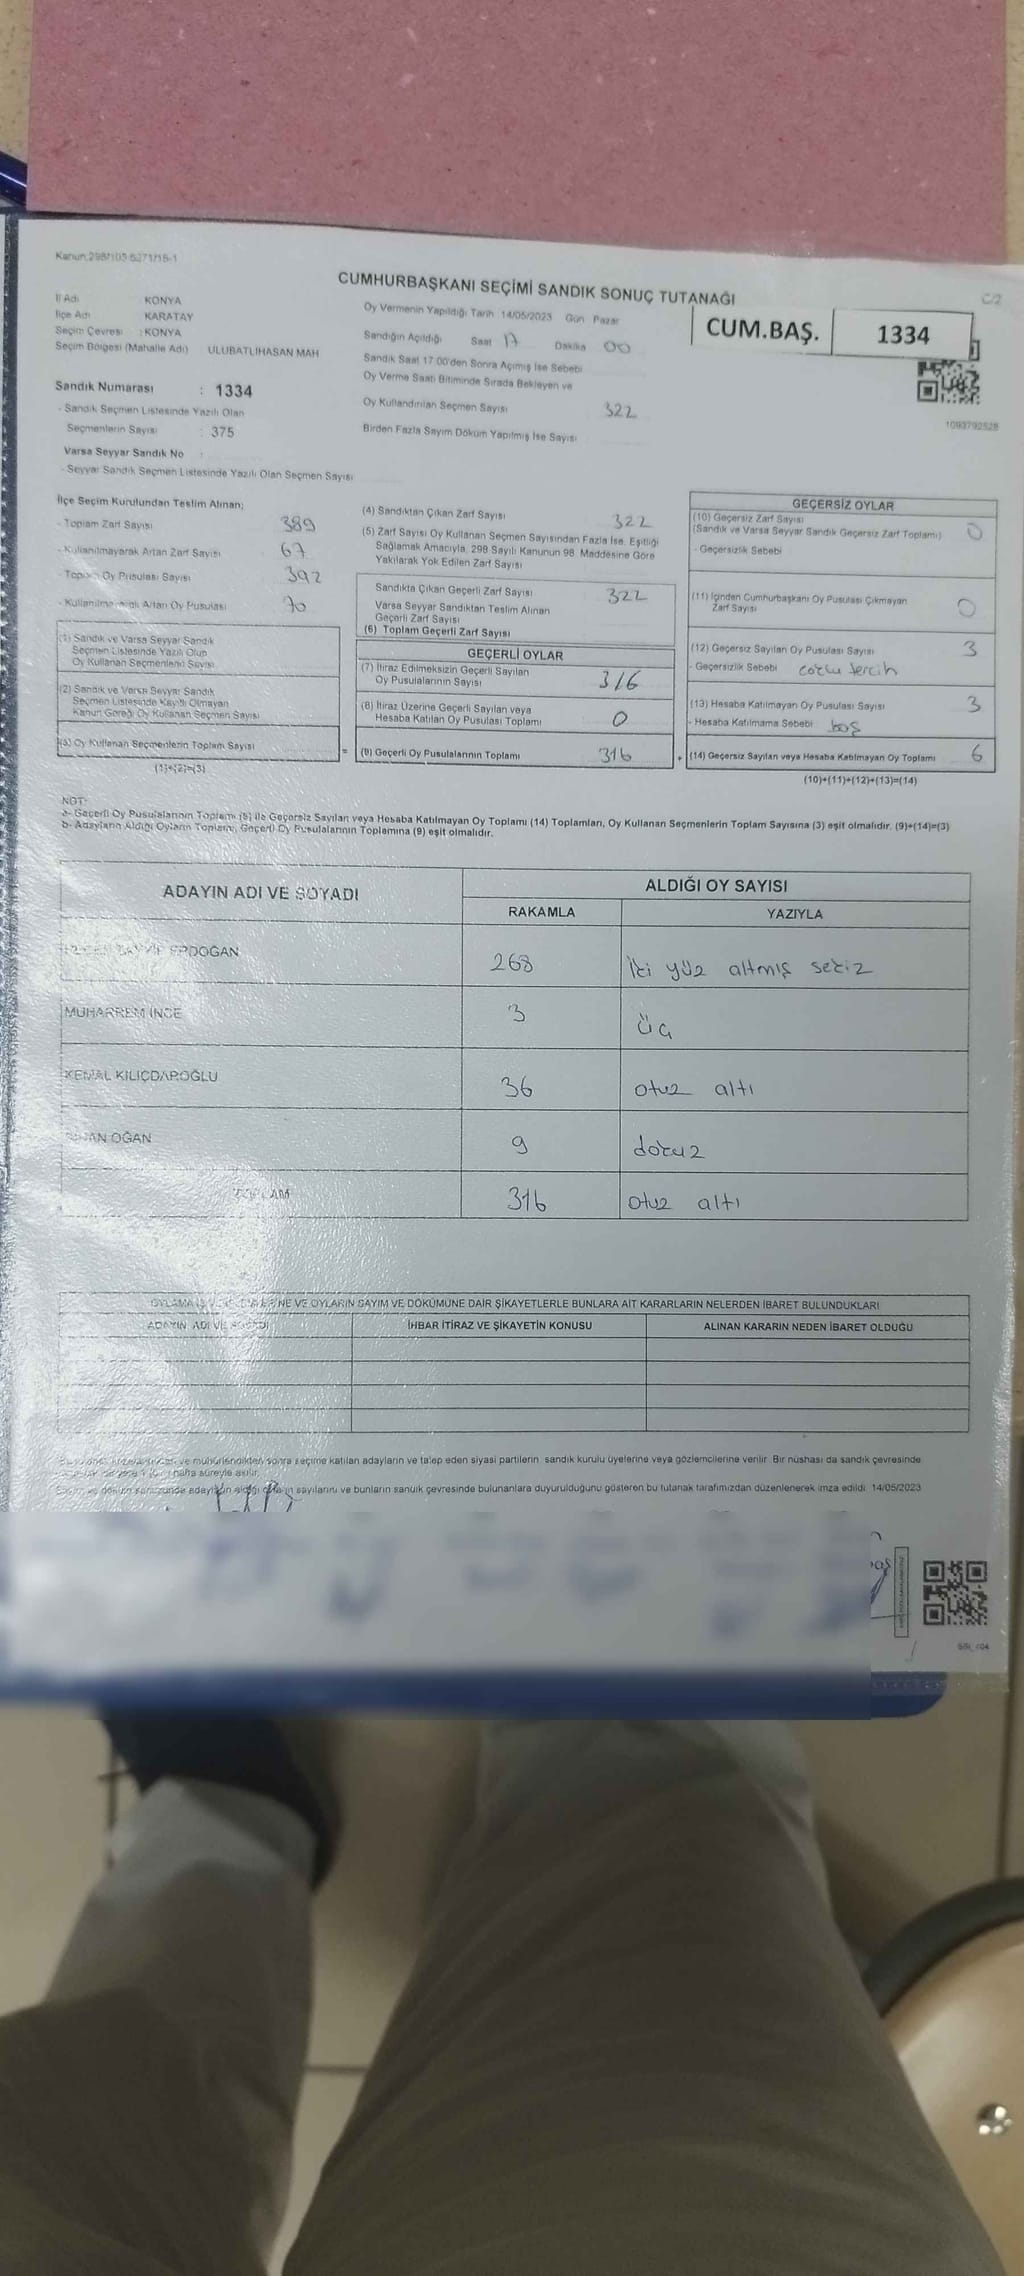 Kanun:298/105 6271/16-1
CUMHURBAŞKANI SEÇİMİ SANDIK SONUÇ TUTANAĞI
C/2
İl Adı KONYA
İlçe Adı KARATAY
Seçim Çevresi : KONYA
Seçim Bölgesi (Mahalle Adı) ULUBATLIHASAN MAH
Sandık Numarası : 1334
- Sandık Seçmen Listesinde Yazılı Olan
Seçmenlerin Sayısı : 375
Varsa Seyyar Sandık No :
- Seyyar Sandık Seçmen Listesinde Yazılı Olan Seçmen Sayısı
Oy Vermenin Yapıldığı Tarih 14/05/2023 Gün Pazar
Sandığın Açıldığı Saat 17 Dakika 00
Sandık Saat 17.00'den Sonra Açımış İse Sebebi
Oy Verme Saati Bitiminde Sırada Bekleyen ve
Oy Kullandırılan Seçmen Sayısı 322
Birden Fazla Sayım Döküm Yapılmış İse Sayısı
CUM.BAŞ. 1334
1093792528
İlçe Seçim Kurulundan Teslim Alınan;
- Toplam Zarf Sayısı 389
- Kullanılmayarak Artan Zarf Sayısı 67
- Toplam Oy Pusulası Sayısı 392
- Artan Oy Pusulası 70
(1) Sandık ve Varsa Seyyar Sandık
Seçmen Listesinde Yazılı Olup
Oy Kullanan Seçmenlerin Sayısı
(2) Sandık ve Varsa Seyyar Sandık
Seçmen Listesinde Kayıtlı Olmayan
Kanun Gereği Oy Kullanan Seçmen Sayısı
(3) Oy Kullanan Seçmenlerin Toplam Sayısı
(1)+(2)=(3)
(4) Sandıktan Çıkan Zarf Sayısı 322
(5) Zarf Sayısı Oy Kullanan Seçmen Sayısından Fazla İse, Eşitliği
Sağlamak Amacıyla, 298 Sayılı Kanunun 98. Maddesine Göre
Yakılarak Yok Edilen Zarf Sayısı
Sandıkta Çıkan Geçerli Zarf Sayısı 322
Varsa Seyyar Sandıktan Teslim Alınan
Geçerli Zarf Sayısı
(6) Toplam Geçerli Zarf Sayısı
GEÇERLİ OYLAR
(7) İtiraz Edilmeksizin Geçerli Sayılan
Oy Pusulalarının Sayısı 316
(8) İtiraz Üzerine Geçerli Sayılan veya
Hesaba Katılan Oy Pusulası Toplamı 0
= (9) Geçerli Oy Pusulalarının Toplamı 316
GEÇERSİZ OYLAR
(10) Geçersiz Zarf Sayısı 0
(Sandık ve Varsa Seyyar Sandık Geçersiz Zarf Toplamı)
- Geçersizlik Sebebi
(11) İçinden Cumhurbaşkanı Oy Pusulası Çıkmayan
Zarf Sayısı 0
(12) Geçersiz Sayılan Oy Pusulası Sayısı 3
- Geçersizlik Sebebi çoklu tercih
(13) Hesaba Katılmayan Oy Pusulası Sayısı 3
- Hesaba Katılmama Sebebi boş
+ (14) Geçersiz Sayılan veya Hesaba Katılmayan Oy Toplamı 6
(10)+(11)+(12)+(13)=(14)
NOT:
a- Geçerli Oy Pusulalarının Toplamı (9) ile Geçersiz Sayılan veya Hesaba Katılmayan Oy Toplamı (14) Toplamları, Oy Kullanan Seçmenlerin Toplam Sayısına (3) eşit olmalıdır. (9)+(14)=(3)
b- Adayların Aldığı Oyların Toplamı, Geçerli Oy Pusulalarının Toplamına (9) eşit olmalıdır.
ADAYIN ADI VE SOYADI ALDIĞI OY SAYISI
RAKAMLA YAZIYLA
ERDOĞAN 268 iki yüz altmış sekiz
MUHARREM İNCE 3 üç
KEMAL KILIÇDAROĞLU 36 otuz altı
OĞAN 9 dokuz
TOPLAM 316 otuz altı
VE OYLARIN SAYIM VE DÖKÜMÜNE DAİR ŞİKAYETLERLE BUNLARA AİT KARARLARIN NELERDEN İBARET BULUNDUKLARI
ADAYIN ADI VE SOYADI İHBAR İTİRAZ VE ŞİKAYETİN KONUSU ALINAN KARARIN NEDEN İBARET OLDUĞU
ve mühürlendikten sonra seçime katılan adayların ve talep eden siyasi partilerin sandık kurulu üyelerine veya gözlemcilerine verilir. Bir nüshası da sandık çevresinde
hafta süreyle asılır.
sayılarını ve bunların sandık çevresinde bulunanlara duyurulduğunu gösteren bu tutanak tarafımızdan düzenlenerek imza edildi. 14/05/2023